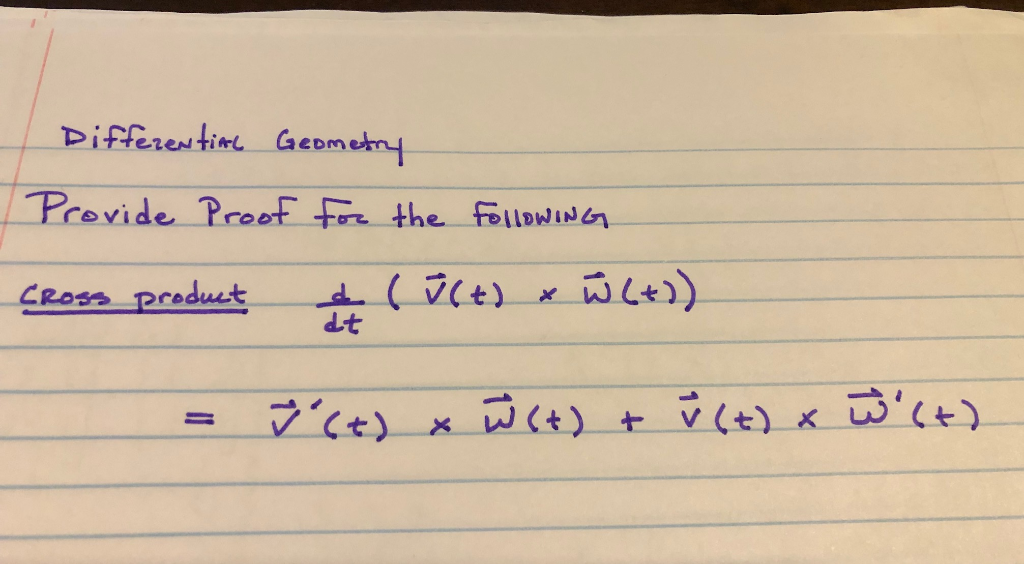 Differential Geometry
Provide Proof for the Following
Cross product d/dt ( v⃗(t) × w⃗(t))
= v⃗'(t) × w⃗(t) + v⃗(t) × w⃗'(t)